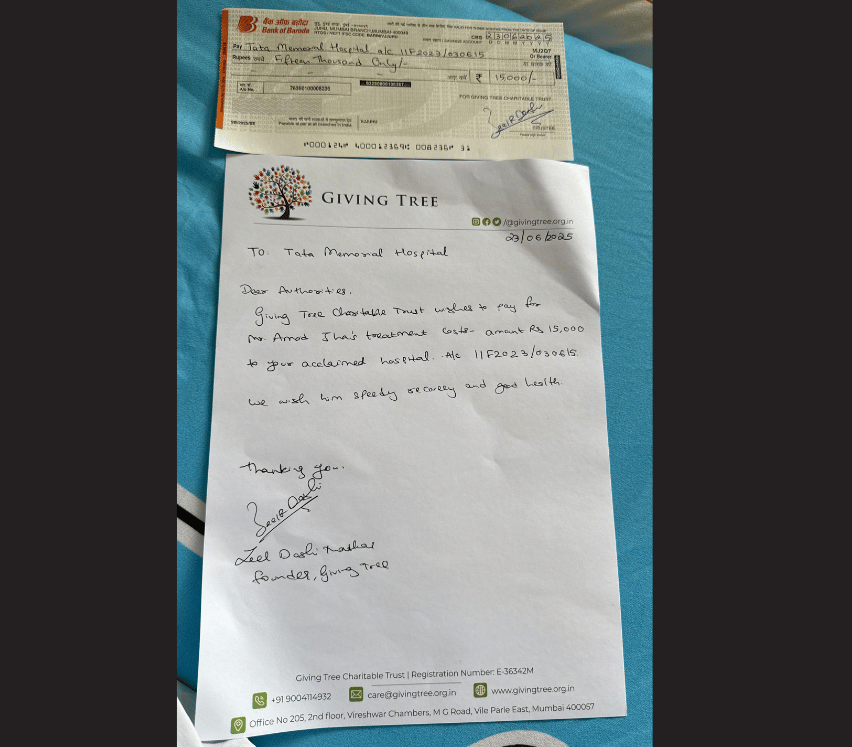 बैंक ऑफ़ बड़ौदा
Bank of Baroda
JUHU, MUMBAI BRANCH, MUMBAI-400049
CBS 23062025
D D M M Y Y Y Y
Pay Tata Memorial Hospital a/c 11F2023/030615
Or Bearer
Rupees रुपये Fifteen Thousand Only/-
₹ 15,000/-
A/c No.
FOR GIVING TREE CHARITABLE TRUST
Payable at par at all branches in India
GIVING TREE
/@givingtree.org.in
23/06/2025
To: Tata Memorial Hospital
Dear Authorities,
Giving Tree Charitable Trust wishes to pay for
Mr. Amod Jha's treatment costs- amount Rs 15,000
to your acclaimed hospital. A/c 11F2023/030615.
We wish him speedy recovery and good health.
Thanking you.
Founder, Giving Tree
Giving Tree Charitable Trust | Registration Number: E-36342M
+91 9004114932 care@givingtree.org.in www.givingtree.org.in
Office No 205, 2nd floor, Vireshwar Chambers, M G Road, Vile Parle East, Mumbai 400057